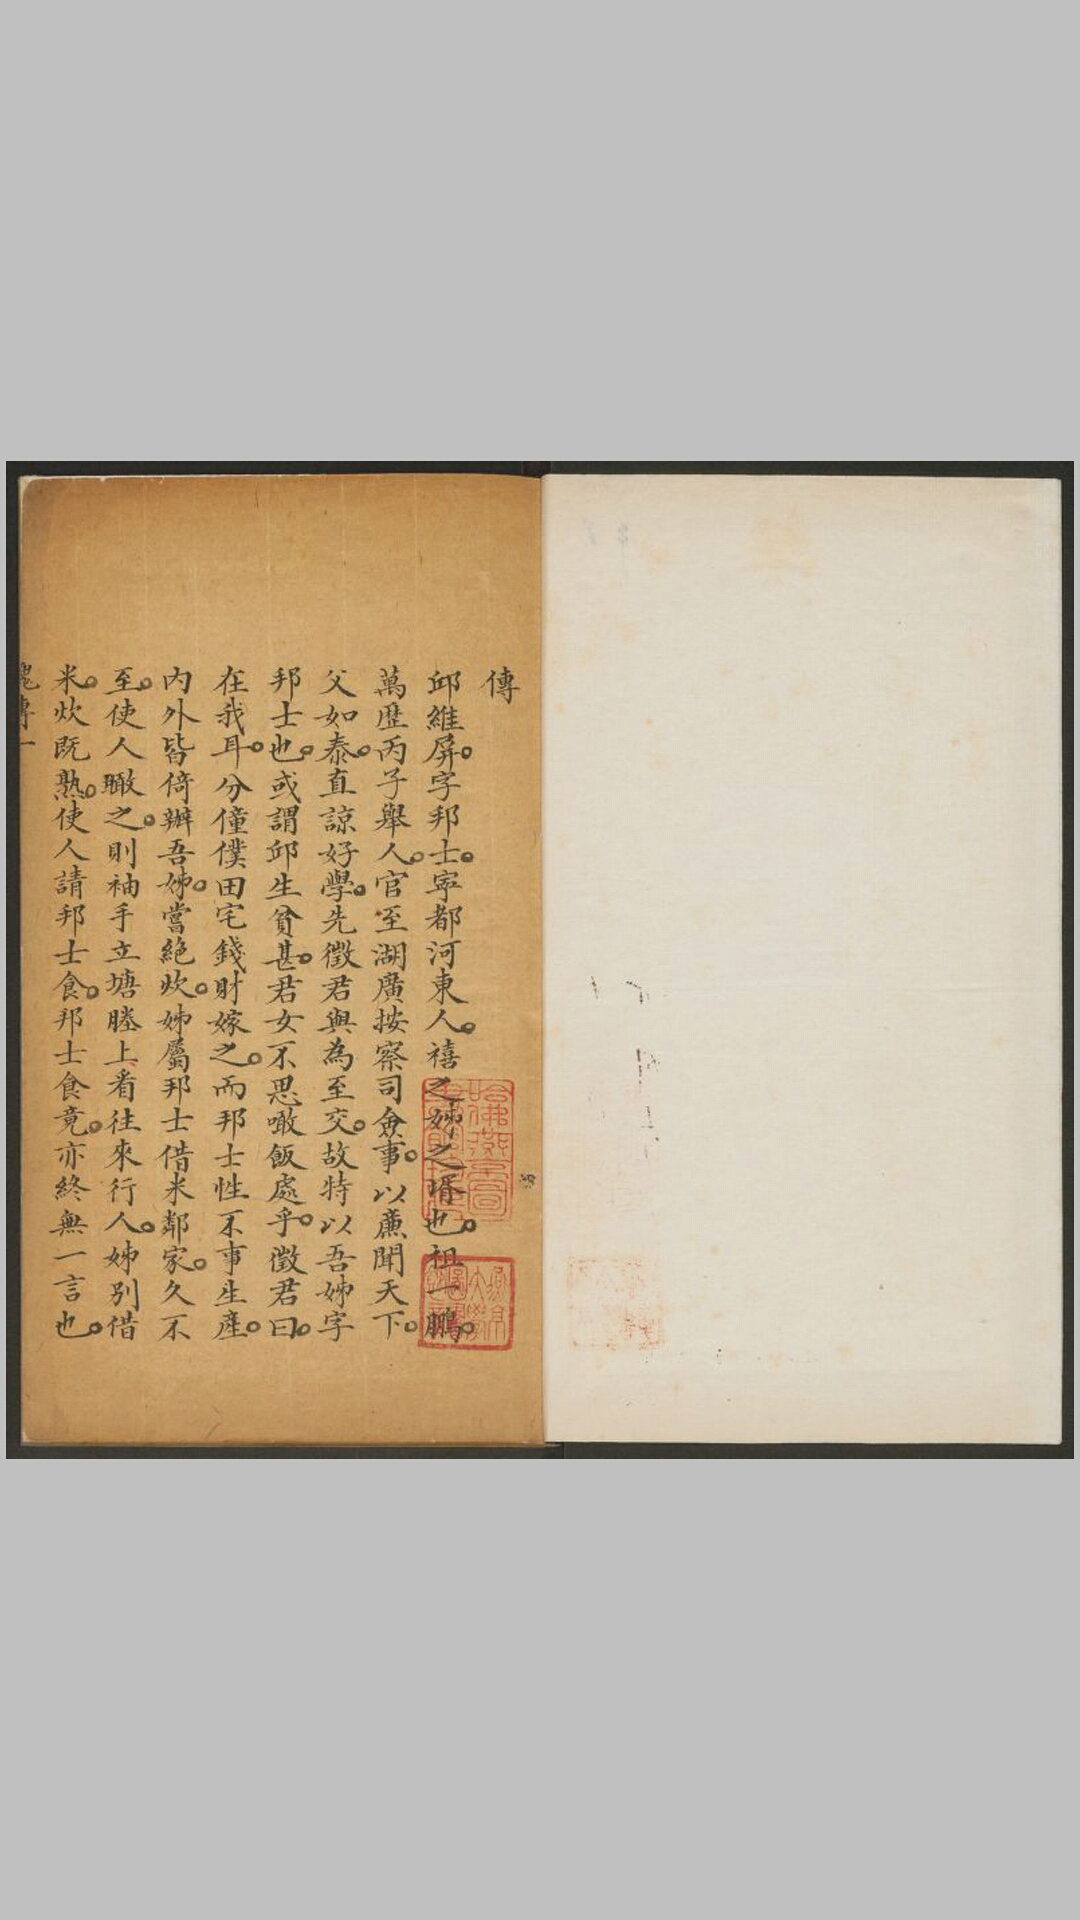 傳
邱維屏。字邦士。寜都河東人。禧之姊之壻也。祖一鵬。
萬歷丙子舉人。官至湖廣按察司僉事。以廉聞天下。
父如泰。直諒好學。先徵君與為至交。故特以吾姊字
邦士也。或謂邱生貧甚。君女不思噉飯處乎。徵君曰。
在我耳。分僮僕田宅錢財嫁之。而邦士性不事生產。
內外皆倚辦吾姊。嘗絕炊。姊屬邦士借米鄰家。久不
至。使人瞰之。則袖手立塘塍上看往來行人。姊别借
米。炊既熟。使人請邦士食。邦士食竟。亦終無一言也。
傳一